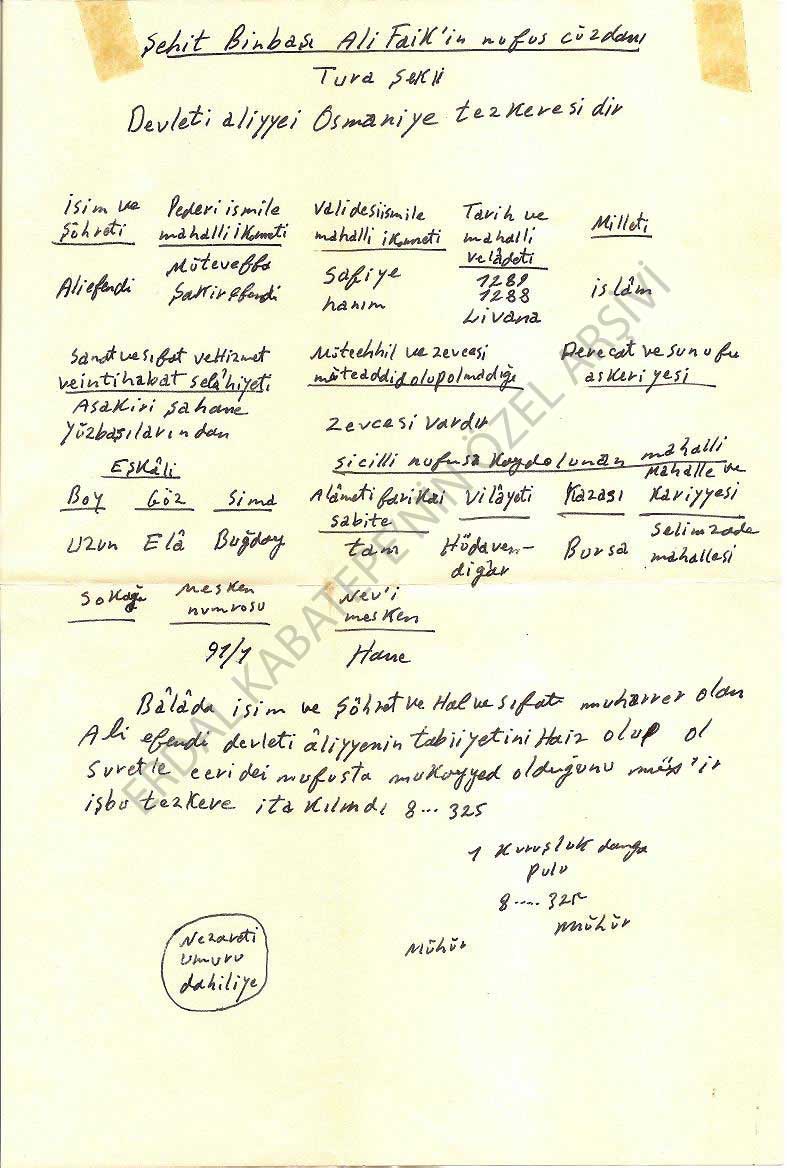 Şehit Binbaşı Ali Faik'in nufus cüzdanı
Tura Şekli
Devleti aliyyei Osmaniye tezkeresidir
İsim ve Şöhreti
Pederi ismile mahalli ikameti
Validesi ismile mahalli ikameti
Tarih ve mahalli velâdeti
Milleti
Ali efendi
Müteveffa Şakir efendi
Safiye hanım
1289
1288
Livana
islâm
Sanat ve sıfat ve Hizmet
ve intihabat selâhiyeti
Müteehhil ve zevcesi
müteaddid olup olmadığı
Derecat ve sunufu
askeriyesi
Asakiri şahane
yüzbaşılarından
Zevcesi vardır
Eşkâli
Sicilli nufusa kaydolunan mahalli
Boy
Göz
Sima
Alâmeti farikai sabite
Vilâyeti
Kazası
Mahalle ve Kariyyesi
Uzun
Elâ
Buğday
tam
Hüdaven-
digâr
Bursa
Selimzade mahallesi
Sokağı
Mesken numrosu
Nev'i mesken
91/1
Hane
Bâlâda isim ve Şöhret ve Hal ve sıfatı muharrer olan
Ali efendi devleti âliyyenin tabiiyetini Haiz olup ol
suretle ceridei nufusta mukayyed olduğunu müş'ir
işbu tezkere ita kılındı 8... 325
1 Kuruşluk damga
pulu
8..... 325
Mühür
mühür
Nezareti
umuru
dahiliye
ERDAL KABATEPE'NİN ÖZEL ARŞİVİ